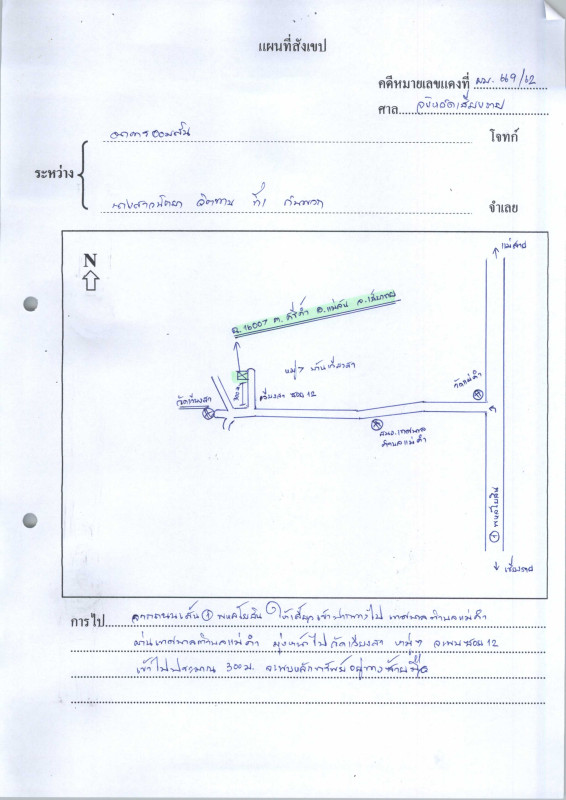 แผนที่สังเขป
คดีหมายเลขแดงที่ ผบ. 669/62
ศาล จังหวัดเชียงราย
ธนาคารออมสิน โจทก์
ระหว่าง
นางสาว ที่ 1 กับพวก จำเลย
N
แม่สาย
ฉ. 16007 ต. ศรีค้ำ อ.แม่จัน จ.เชียงราย
หมู่ 7
300 ม.
เวียงสา ซอย 12
วัดเวียงสา
วัดแม่คำ
สนง.เทศบาล
ตำบลแม่คำ
1 พหลโยธิน
เชียงราย
การไป จากถนนเส้น 1 พหลโยธิน ให้เลี้ยวเข้า ทางไป เทศบาลตำบลแม่คำ
ผ่านเทศบาลตำบลแม่คำ มุ่งหน้าไป วัดเวียงสา หมู่ 7 จะพบ ซอย 12
เข้าไปประมาณ 300 ม. จะพบหลักทรัพย์อยู่ทางซ้ายมือ